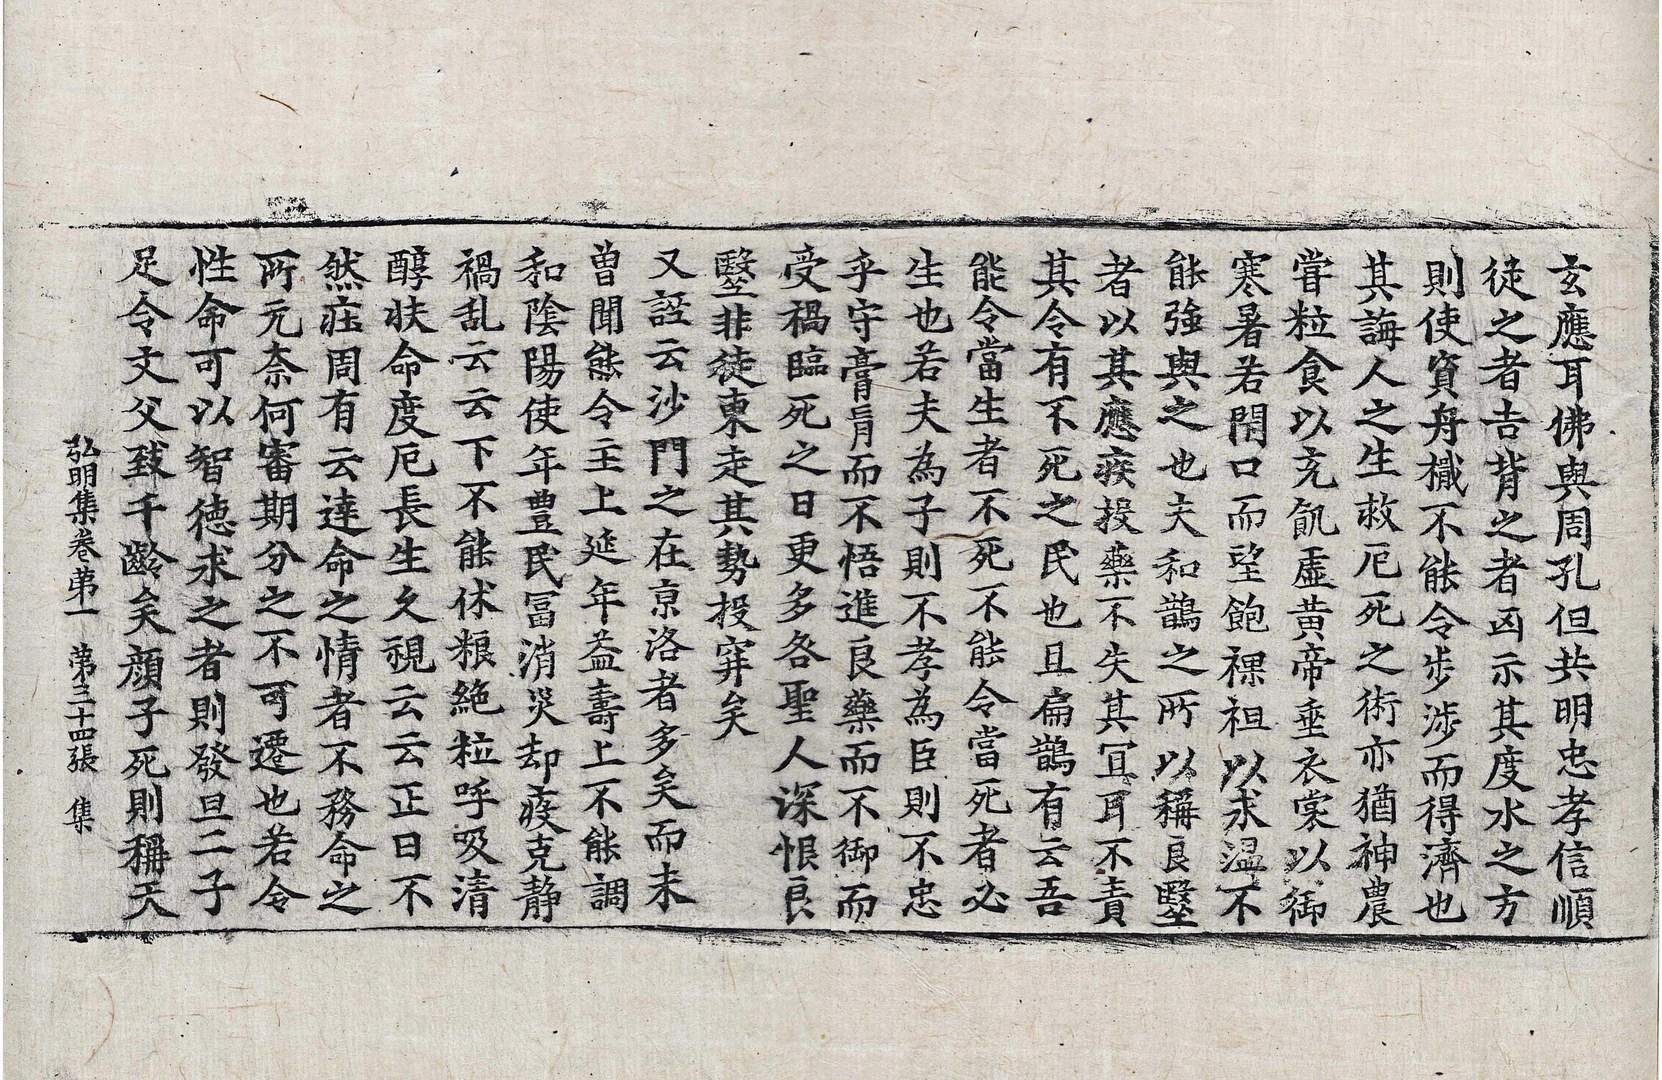 玄應耳佛與周孔但共明忠孝信順
徒之者吉背之者凶示其度水之方
則使資舟檝不能令步涉而得濟也
其誨人之生救厄死之術亦猶神農
嘗粒食以充飢虛黃帝垂衣裳以御
寒暑若閇口而望飽裸袒以求温不
能強與之也夫和鵲之所以稱良毉
者以其應疾投藥不失其冝耳不責
其令有不死之民也且扁鵲有云吾
能令當生者不死不能令當死者必
生也若夫為子則不孝為臣則不忠
乎守膏肓而不悟進良藥而不御而
受禍臨死之日更多各聖人深恨良
毉非徒東走其勢投穽矣
又詆云沙門之在京洛者多矣而未
曽聞能令主上延年益壽上不能調
和陰陽使年豊民冨消災却疫克静
禍乱云云下不能休粮絶粒呼吸清
醇扶命度厄長生久視云云正曰不
然莊周有云達命之情者不務命之
所无奈何審期分之不可遷也若令
性命可以智徳求之者則發旦二子
足令文父致千齡矣顔子死則稱天
弘明集卷第一 第三十四張 集